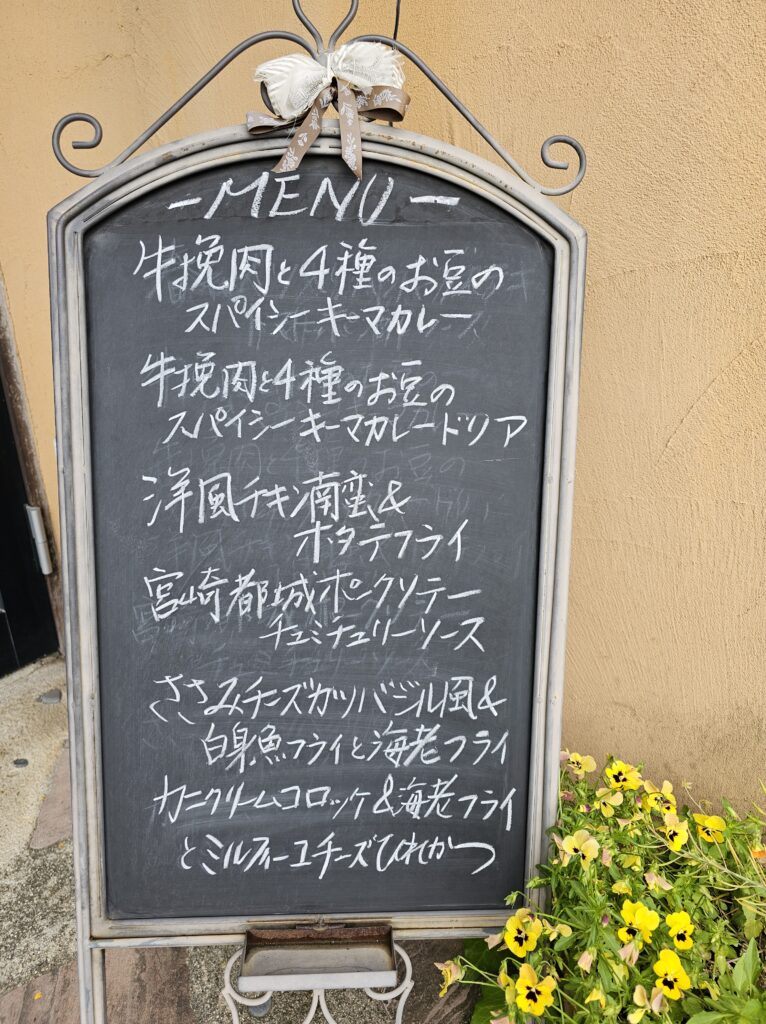 -MENU-
牛挽肉と4種のお豆の
スパイシーキーマカレー
牛挽肉と4種のお豆の
スパイシーキーマカレードリア
洋風チキン南蛮&
ホタテフライ
宮崎都城ポークソテー
チュミチュリーソース
ささみチーズカツバジル風&
白身魚フライと海老フライ
カニクリームコロッケ&海老フライ
とミルフィーユチーズひれかつ